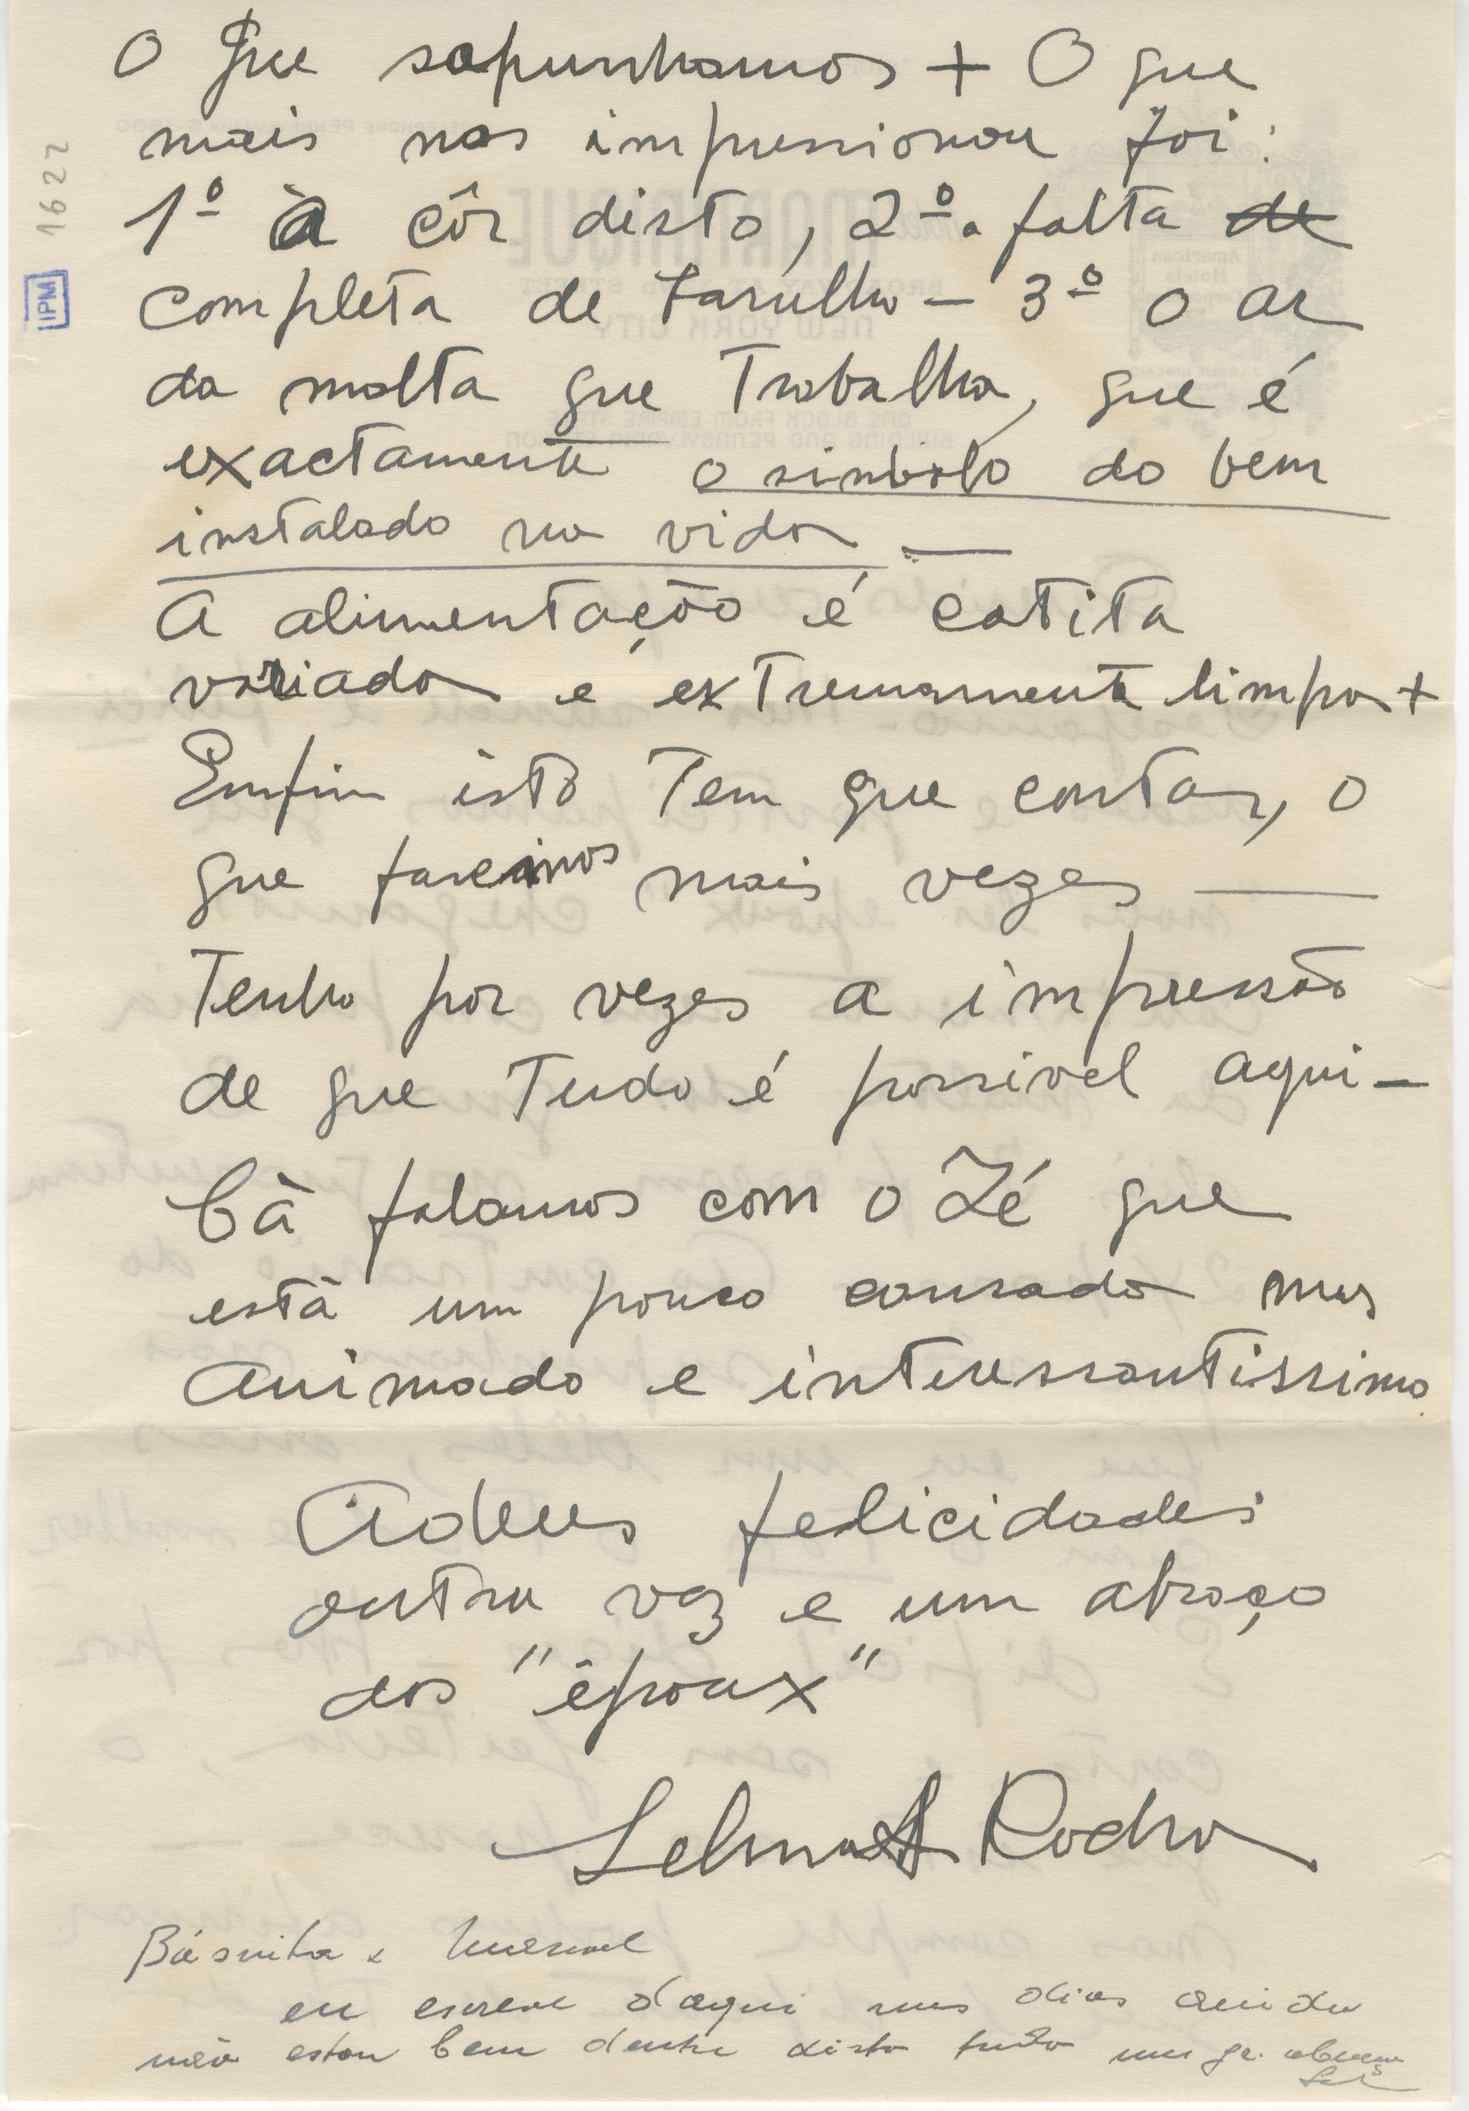 O que sopunhamos + O que
mais nos impressionou foi:
1º à côr disto, 2º a falta de
completa de barulho - 3º o ar
da malta que Trabalha, que é
exactamente o simbolo do bem
instalado na vida —
A alimentação é catita
variada e extremamente limpa +
Emfim isto Tem que contar, o
que faremos mais vezes —
Tenho por vezes a impressão
de que Tudo é possivel aqui -
Cà falamos com o Zé que
està um pouco cansado mas
animado e interessantissimo
Adeus felicidades
outra vez e um abraço
dos "êpoux"
Selma Rocha
e Manuel
eu escrevo daqui uns dias ainda
não estou bem dentro disto tudo um gr. abraço
1622
IPM
NEW YORK CITY